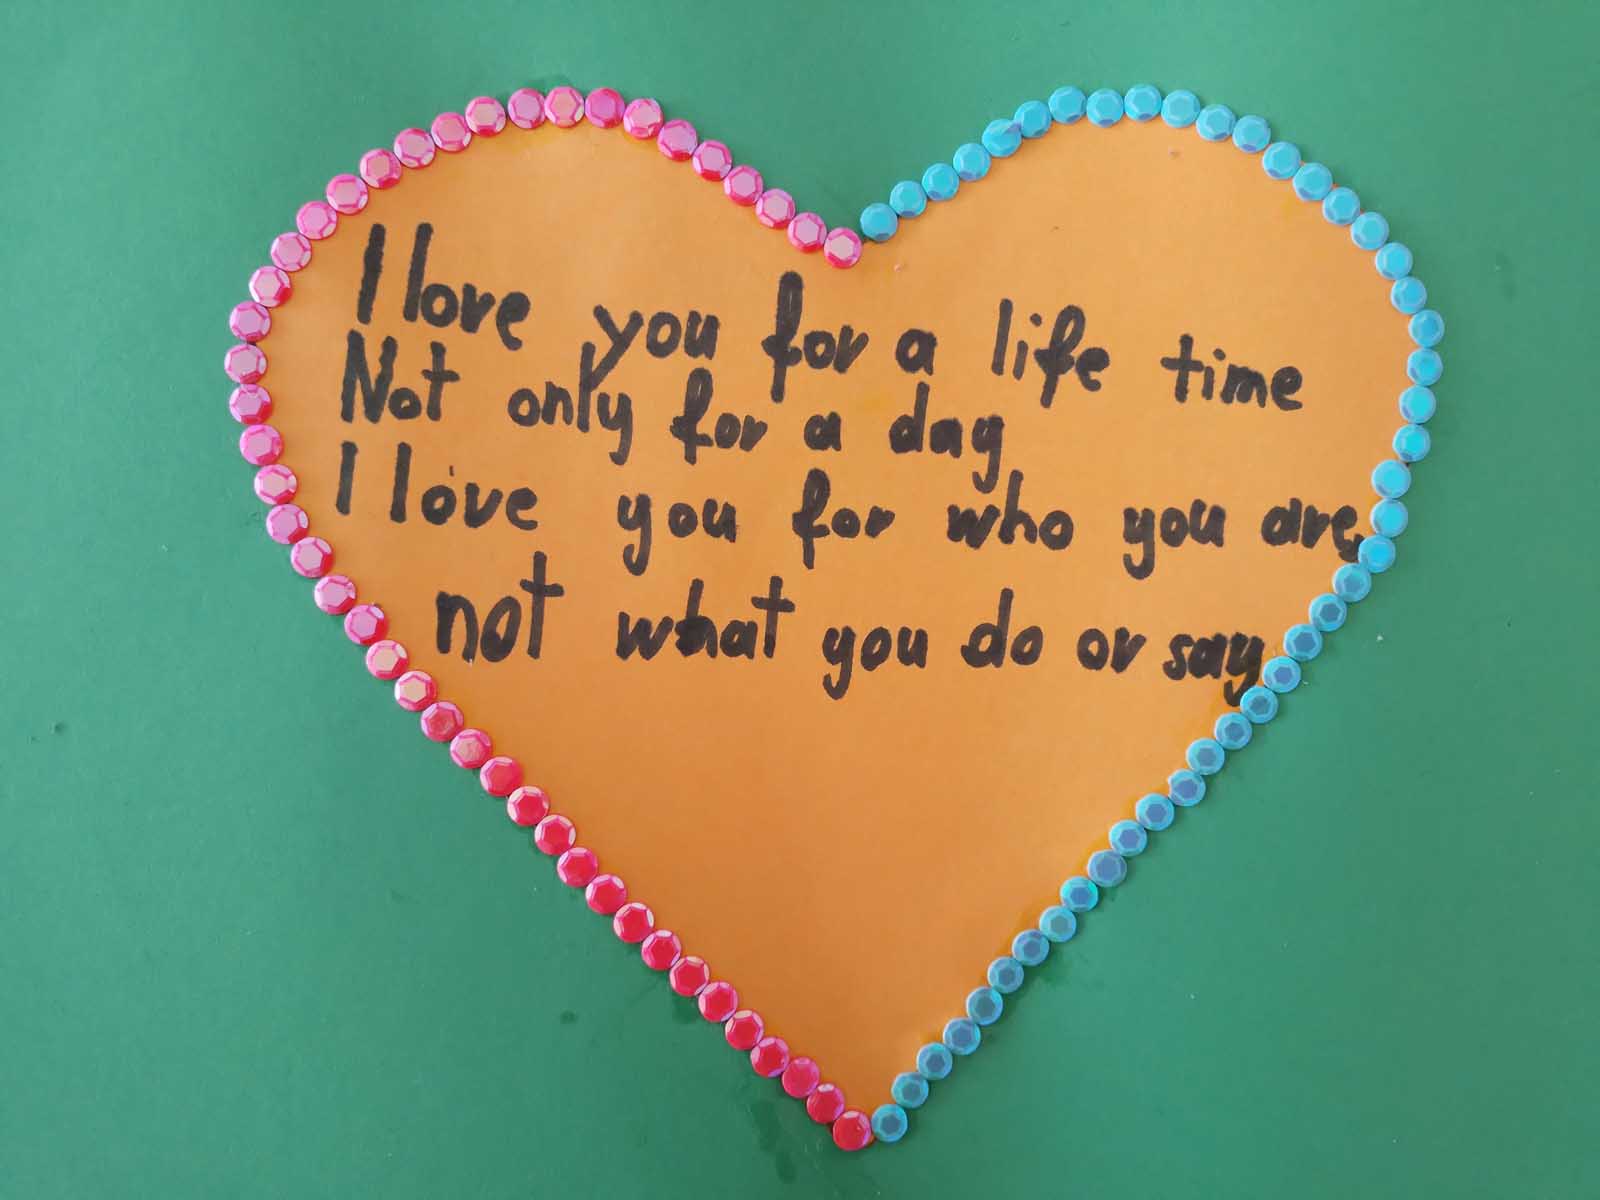 I love you for a life time
Not only for a day
I love you for who you are,
not what you do or say